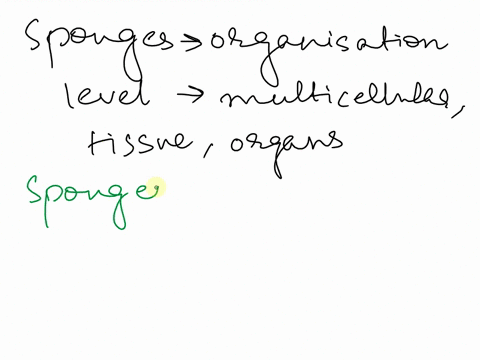 Sponges → organisation
level → multicellular,
tissue, organs
Sponge